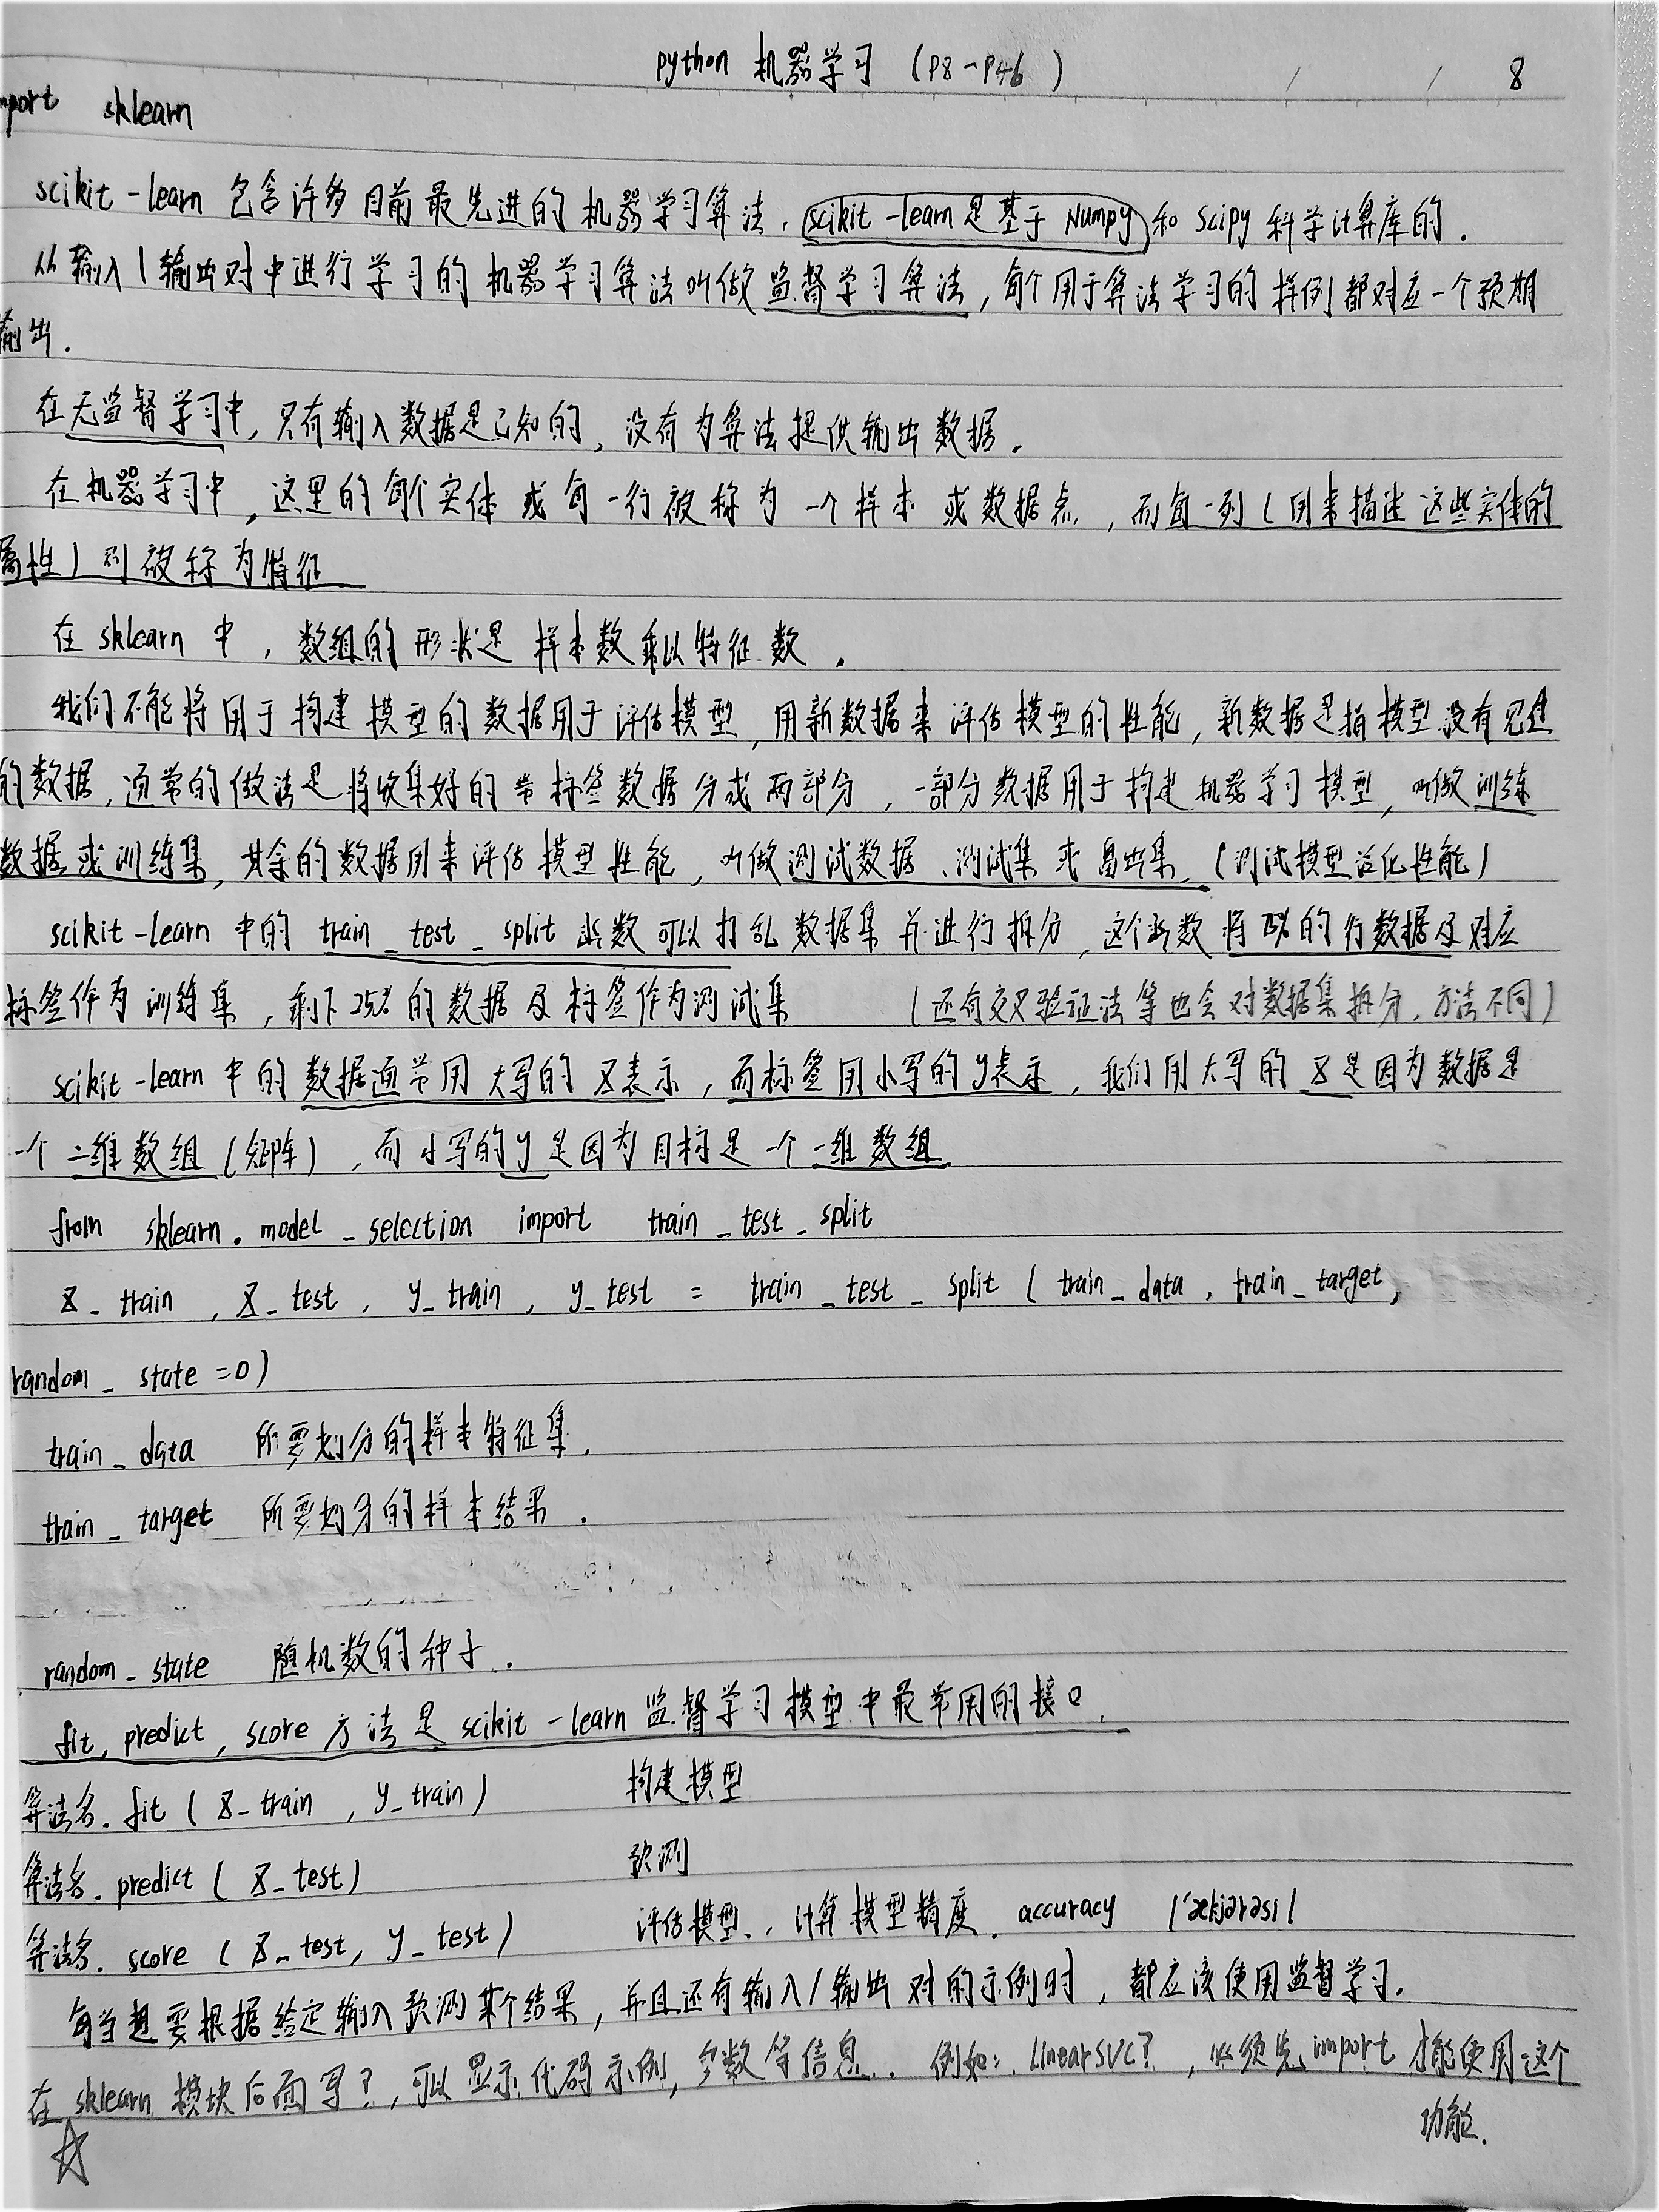 python 机器学习 (P8-P46) / / 8
mport sklearn
scikit-learn 包含许多目前最先进的机器学习算法, scikit-learn是基于Numpy和Scipy科学计算库的.
从输入/输出对中进行学习的机器学习算法叫做监督学习算法,每个用于算法学习的样例都对应一个预期
输出.
在无监督学习中,只有输入数据是已知的,没有为算法提供输出数据.
在机器学习中,这里的每个实体或每一行被称为一个样本或数据点,而每一列(用来描述这些实体的
属性)则被称为特征
在sklearn中,数组的形状是样本数乘以特征数.
我们不能将用于构建模型的数据用于评估模型,用新数据来评估模型的性能,新数据是指模型没有见过
的数据,通常的做法是将收集好的带标签数据分成两部分,一部分数据用于构建机器学习模型,叫做训练
数据或训练集,其余的数据用来评估模型性能,叫做测试数据、测试集或留出集.(测试模型泛化性能)
scikit-learn中的train_test_split函数可以打乱数据集并进行拆分,这个函数将75%的行数据及对应
标签作为训练集,剩下25%的数据及标签作为测试集 (还有交叉验证法等也会对数据集拆分,方法不同)
scikit-learn中的数据通常用大写的X表示,而标签用小写的y表示,我们用大写的X是因为数据是
一个二维数组(矩阵),而小写的y是因为目标是一个一维数组.
from sklearn.model_selection import train_test_split
X_train, X_test, y_train, y_test = train_test_split(train_data, train_target,
random_state=0)
train_data 所要划分的样本特征集.
train_target 所要划分的样本结果.
random_state 随机数的种子.
fit, predict, score方法是scikit-learn监督学习模型中最常用的接口.
算法名.fit(X_train, y_train) 构建模型
算法名.predict(X_test) 预测
算法名.score(X_test, y_test) 评估模型,计算模型精度. accuracy /ˈækjərəsi/
每当想要根据给定输入预测某个结果,并且还有输入/输出对的示例时,都应该使用监督学习.
在sklearn模块后面写?,可以显示代码示例,参数等信息. 例如: LinearSVC?,必须先import才能使用这个
功能.